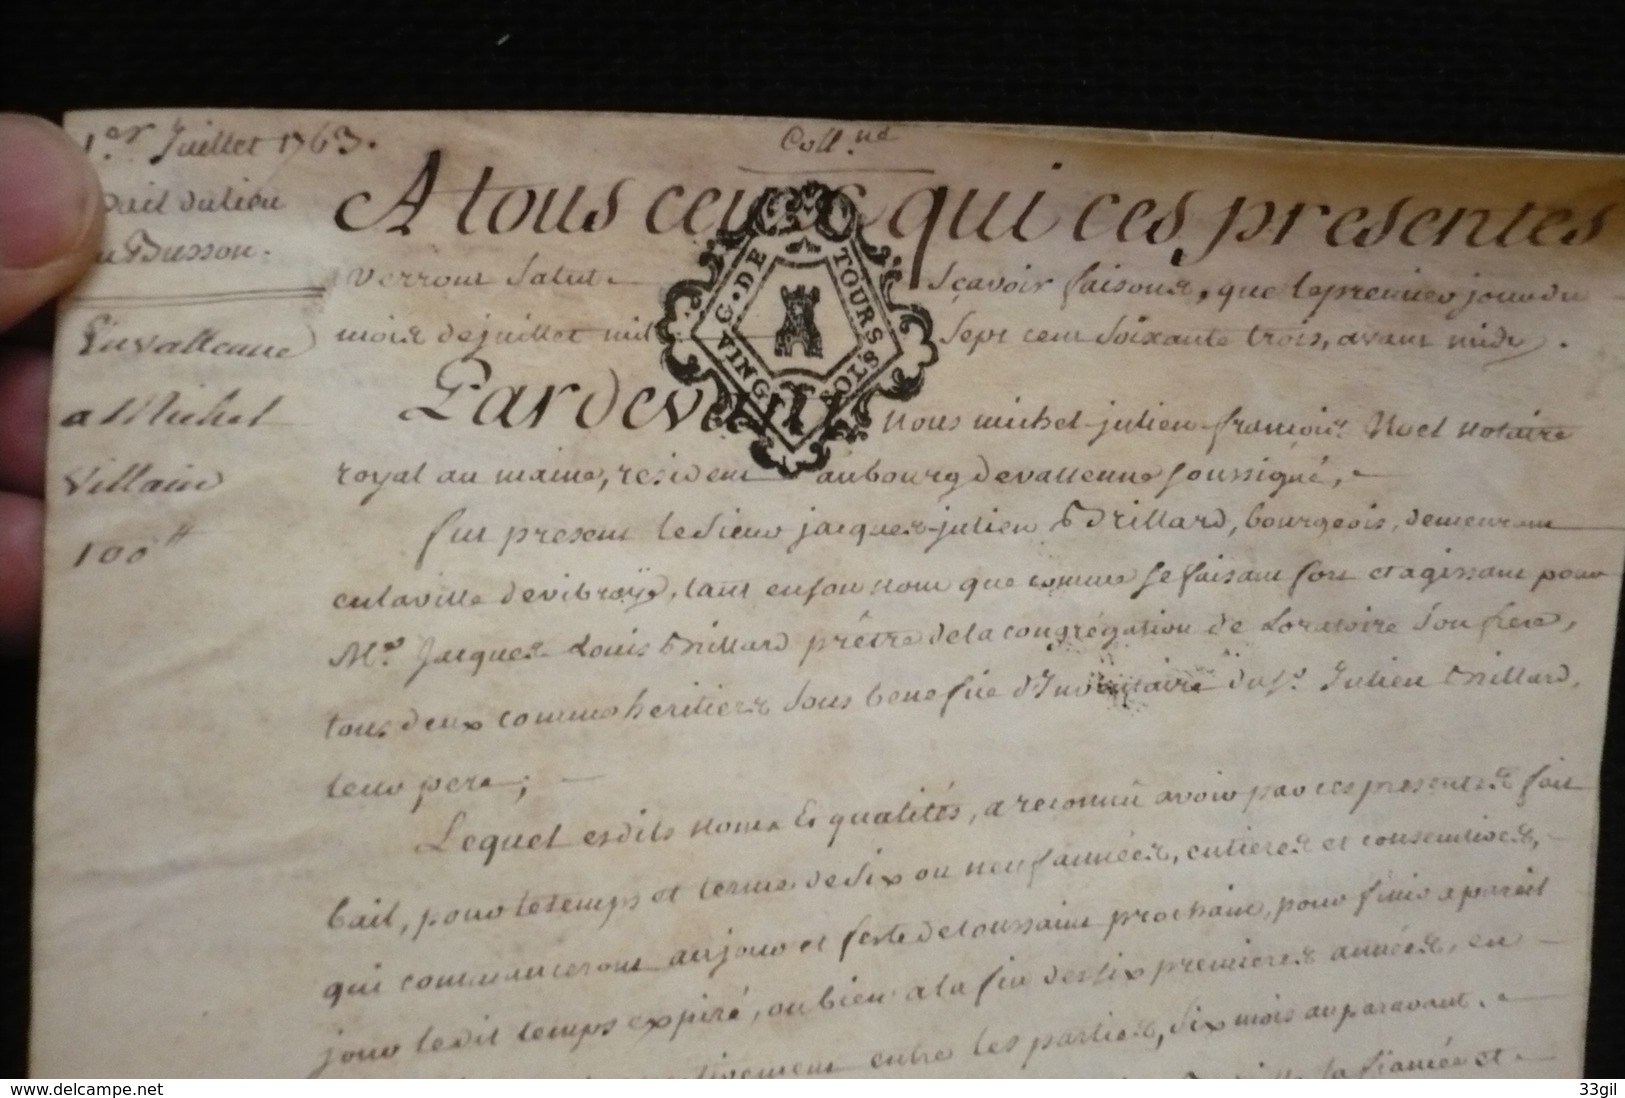 1.er Juillet 1763.
Bail du lieu
du Busson.
En Vallenne
a Michel
Villain
100tt
Coll.nd
A tous ceux qui ces presentes
verront Salut. Sçavoir faisons, que le premier jour du
mois de juillet mil Sept cent Soixante trois, avant midy.
G. DE TOURS
VING SOLS
Pardevant Nous michel julien françois Noel notaire
royal au maine, resident au bourg de vallenne soussigné,
fut present le Sieur jacques julien Drillard, bourgeois, demeurant
en la ville de vibraÿe, tant en son nom que comme se faisant fort et agissant pour
Me. Jacques Louis Drillard prêtre de la congrégation de Loratoire Son frere,
tous deux comme heritiers Sous benefice d'Inventaire du Sr. Julien Drillard,
leur pere;
Lequel esdits noms & qualités, a reconnu avoir par ces presentes fait
bail, pour le temps et terme de Six ou neuf années, entieres et consecutives,
qui commenceront au jour et feste de toussaint prochain, pour finir a pareil
jour ledit temps expiré, ou bien a la fin des six premieres années, en
entre les parties, Six mois auparavant.
la fiancée et
https://www.delcampe.net
33gil